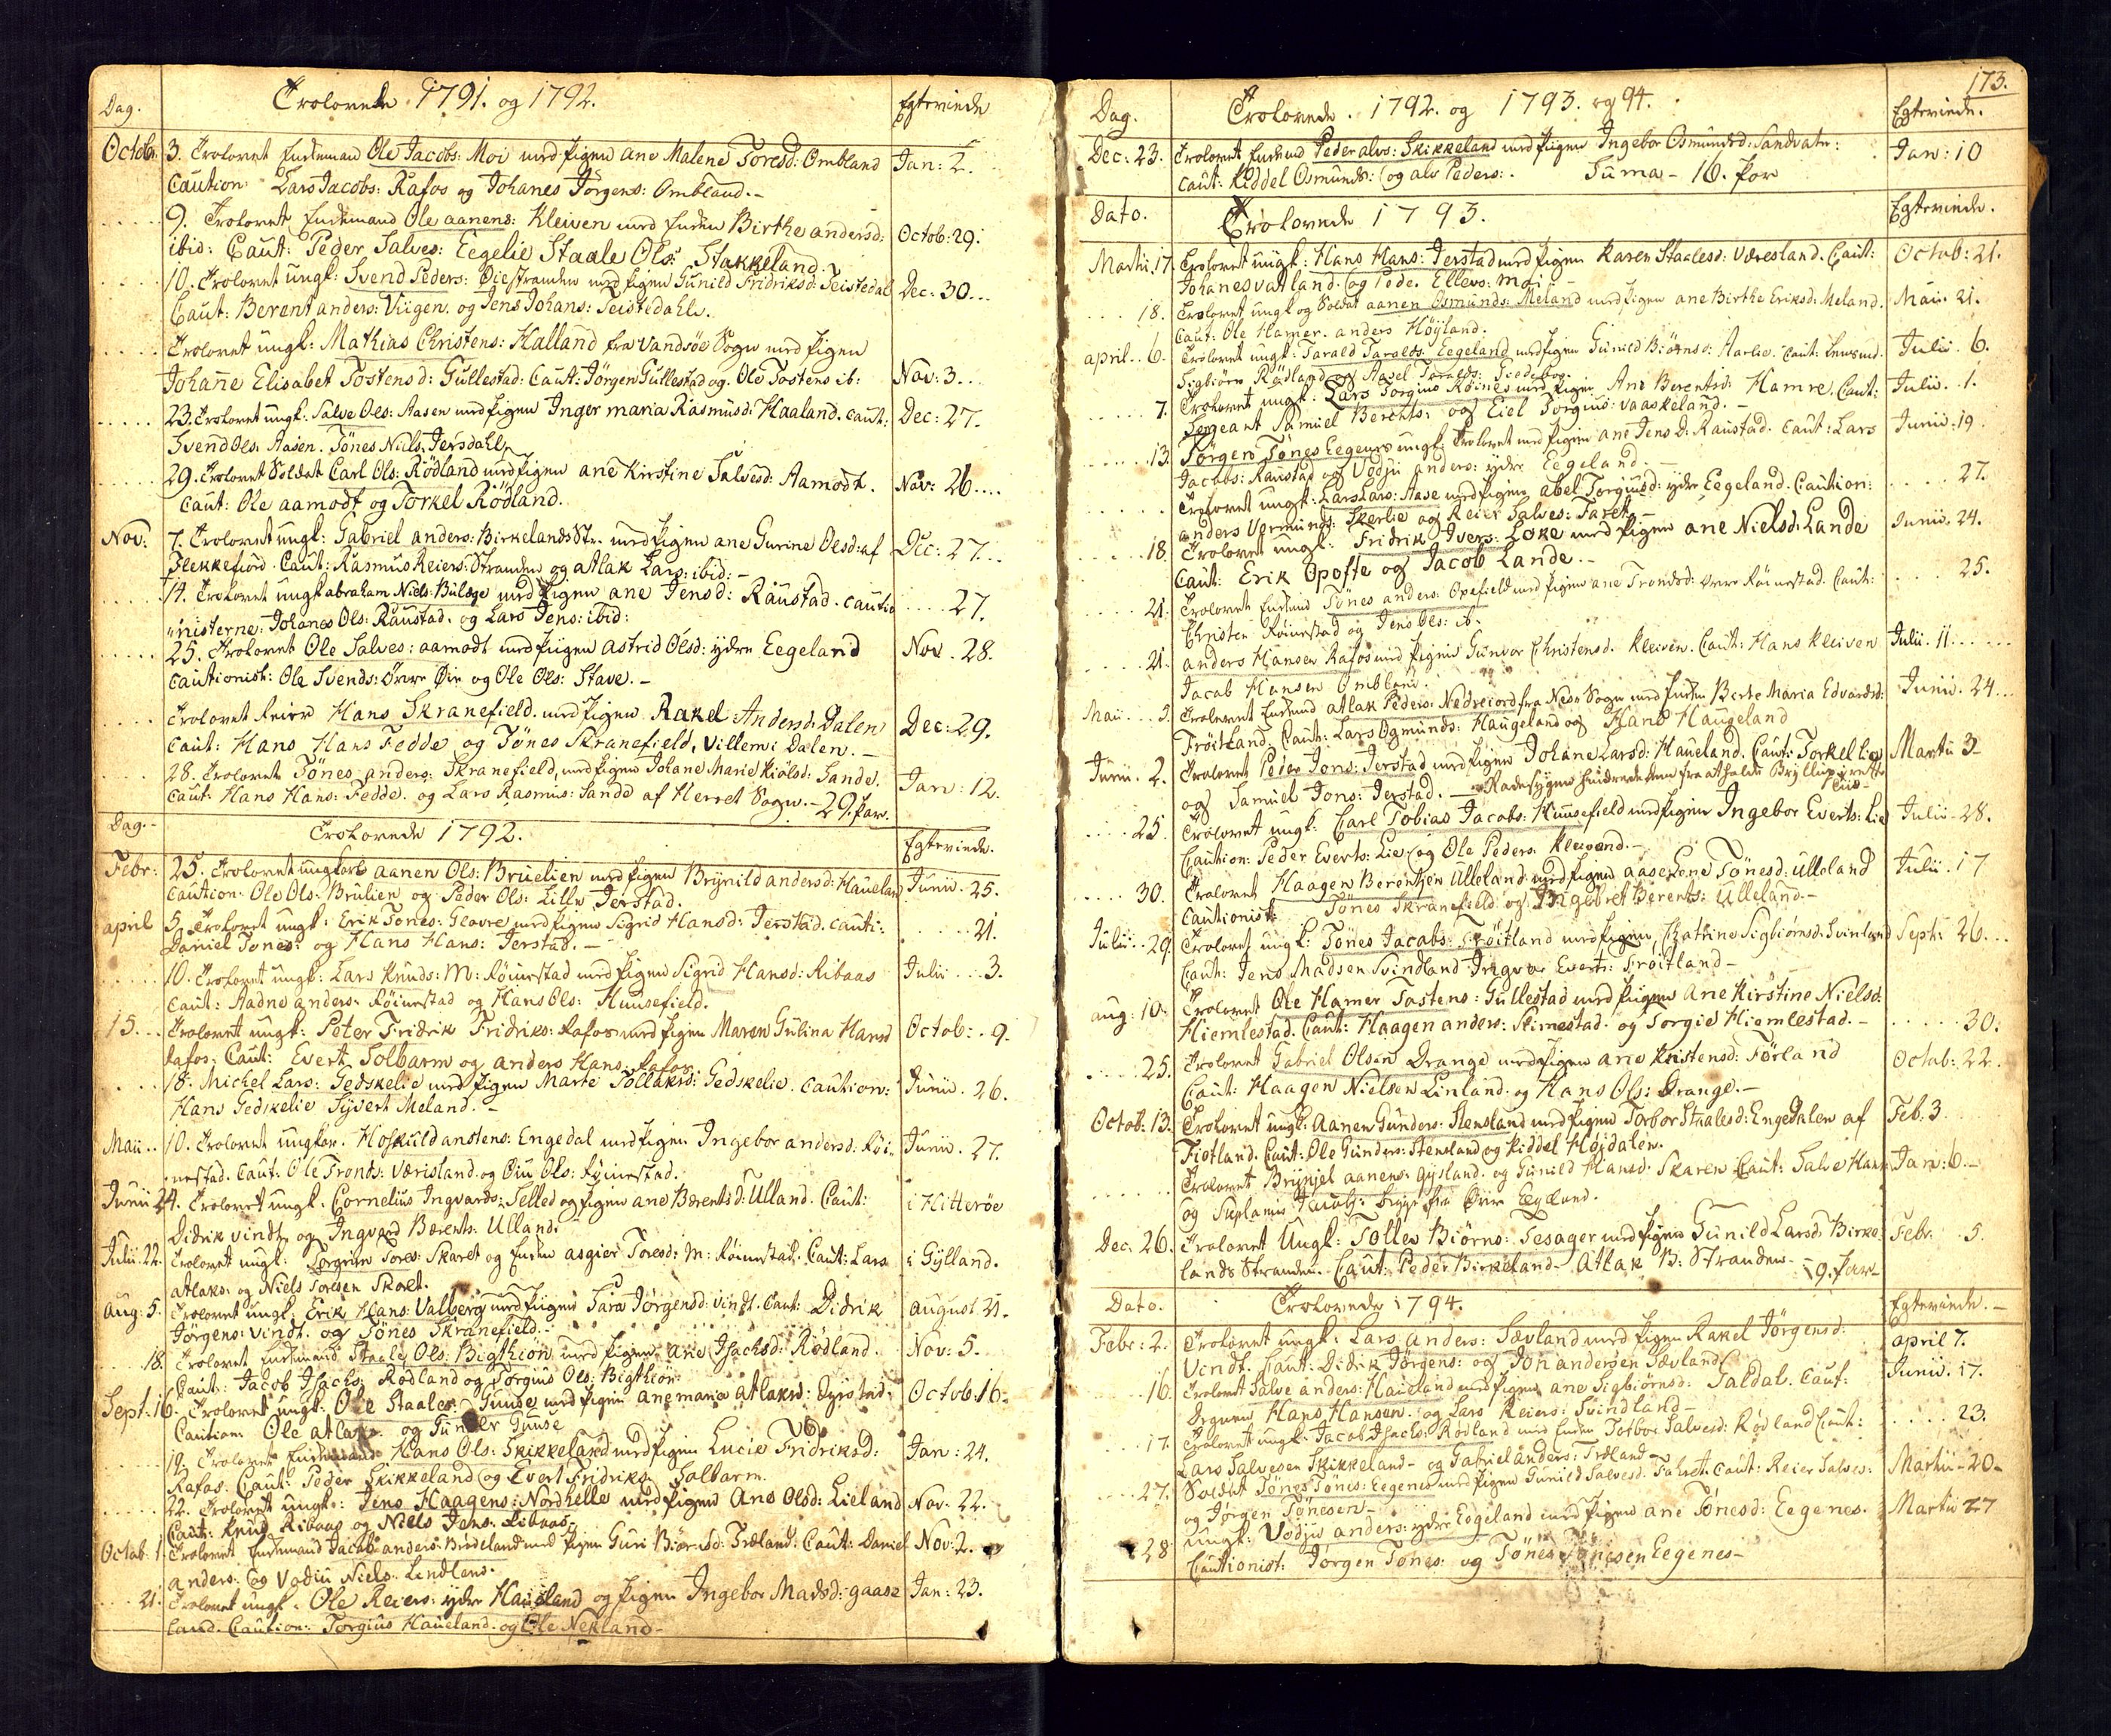 Dag. Trolovede 1791. og 1792. Egteviede
Octobr: 3. Trolovet Enkeman Ole Jacobs: Moi med Pigen Ane Malene Toresd: Ombland Jan: 2.
Caution: Lars Jacobs: Rafos og Johanes Jörgens: Ombland.-
9. Trolovet Enkemand Ole aanens: Kleiven med Enken Birthe andersd: Octob: 29.
ibid: Caut: Peder Salves: Eegelie Staale Ols: Stakkeland.
10. Trolovet ungk: Svend Peders: Öiestranden med Pigen Gunild Fridriksd: Teistedal Dec: 30...
Caut: Berent anders: Viigen. og Jens Johans: Teistedahl.
Trolovet ungk: Mathias Christens: Halland fra Vandsöe Sogn med Pigen
Johane Elisabet Tostensd: Gullestad. Caut: Jörgen Gullestad og Ole Tostens ib: Nov: 3...
23. Trolovet ungk: Salve Ols: Aasen med Pigen Inger maria Rasmusd: Haaland. Caut: Dec: 27.
Svend Ols: Aasen. Tönes Niels: Jersdahl.
29. Trolovet Soldat Carl Ols: Rödland med Pigen ane Kirstine Salvesd: Aamodt. Nov: 26....
Caut: Ole aamodt og Torkel Rödland.
Nov: 7. Trolovet ungk: Gabriel anders: Birkelands Str. med Pigen ane Gurine Olsd: af Dec: 27...
Flekkefiord. Caut: Rasmus Reiers: Stranden og Atlak Lars: ibid: -
14. Trolovet ungk abraham Niels: Bulæge med Pigen ane Jensd: Raustad. Cautio .... 27.
nisterne: Johanes Ols: Raustad. og Lars Jens: ibid:
25. Trolovet Ole Salves: aamodt med Piigen astrid Olsd: ydre Eegeland Nov. 28.
Cautionist: Ole Svends: Övre Öie og Ole Ols: Stave.-
Trolovet Reier Hans Skranefield. med Pigen Rakel Andersd: Dalen Dec: 29.
Caut: Hans Hans Fedde og Tönes Skranefield. Villem i Dalen.-
28. Trolovet Tönes anders: Skranefield, med Pigen Johane Marie Kiölsd: Sande. Jan: 12.
Caut: Hans Hans: Fedde. og Lars Rasmus: Sande af Herret Sogn.- 29. Par.
Dag.- Trolovede 1792. Egteviede.
Febr: 25. Trolovet ungkarl aanen Ols: Bruelien med Pigen Brynild andersd: Hauelan Junii. 25.
Caution: Ole Ols: Brulien og Peder Ols: Lille Jerstad.
april 5. Trolovet ungk: Erik Tönes: Glavre med Pigen Sigrid Hansd: Jerstad. Cauti: ..... 21.
Daniel Tönes: og Hans Hans: Jerstad.-
10. Trolovet ungk: Lars Knuds: M: Röinestad med Pigen Sigrid Hansd: Ribaas Julii ... 3.
Caut: Aadne anders: Röinestad og Hans Ols: Huusefield.
15... Trolovet ungk: Peter Fridrik Fridriks: Rafos med Pigen Maren Gulina Hansd Octob: . 9.
Rafos. Caut: Evert Solbarm og anders Hans: Rafos.
18. Michel Lars: Gedskelie med Pigen Marte Tollaksd: Gedskelie. Caution: Junii. 26.
Hans Gedskelie Syvert Meland.-
Maii.. 10. Trolovet ungkar. Hoskuld anstens: Engedal med Pigen Ingebor andersd: Röi- Junii. 27.
nestad. Caut: Ole Tronds: Værisland. og Ole Ols: Röinestad.
Junii 24. Trolovet ungk. Cornelius Ingvards: Selled og Pigen ane Berentsd: Ulland. Caut: i Hitteröe
Didrik vindt og Ingvard Berents: Ulland.
Julii. 22. Trolovet ungk: Torgrim Tores: Skaret og Enken asgier Toresd: M: Röinestad. Caut: Lars i Gylland.
Atlaks: og Niels Toresen Skaret.
Aug: 5. Trolovet ungk: Erik Hans: Valberg med Piigen Sara Jörgensd: vindt. Caut: Didrik august 21.
Jörgens: vindt. og Tönes Skranefield.-
... 18. Trolovet Enkemand Staale Ols: Bigtheön med Pigen Ane Isachsd: Rödland. Nov: 5.
Caut: Jacob Isachs: Rödland og Torgius Ols: Bigtheön.
Sept: 16. Trolovet ungk: Ole Staales: Gunse med Pigen Ane maria Atlaksd: Dyrstad: Octob. 16.
Caution: Ole atlaks: og Gunder Gunse
19. Trolovet Enkemand Hans Ols: Skikkeland med Pigen Lucie Fridriksd: Jan: 24.
Rafos. Caut: Peder Skikkeland og Evert Fridriks: Solbarm.
22. Trolovet ungk: Jens Haagens: Nordhelle med Pigen Ane Olsd: Lieland Nov. 22.
Caut: Knud Ribaas og Niels Jens: Ribaas.
Octob. 1. Trolovet Enkemand Jacob anders: Birkeland med Pigen Guri Biörnsd: Træland. Caut: Daniel Nov: 2.
anders: og Vodju Niels: Lindland.
... 21. Trolovet ungk. Ole Reiers: ydre Haueland og Pigen Ingebor Madsd: gaase Jan: 23.
land. Caution: Torgius Haueland. og Ole Nekland-
173.
Dag. Trolovede. 1792. og 1793. og 94. Egteviede.
Dec: 23. Trolovet Enkemd Peder alvs: Skikkeland med Piigen Ingebor Osmundsd: Sandvatn: Jan: 10
Caut: Kiddel Osmunds: og alv Peders: Suma - 16. Par
Dato. Trolovede 1793. Egteviede.
Martii. 17 Trolovet ungk: Hans Hans: Jerstad med Pigen Karen Staalesd: Væresland. Caut: Octob: 21.
Johanes vatland. og Peder Ellevs: Moi.-
... 18. Trolovet ungk og Soldat aanen Osmunds: Meland med Pigen ane Birthe Eriksd: Meland. Maii. 21.
Caut. Ole Hamer. anders Höyland.
april.. 6. Trolovet ungk: Tarald Taralds: Eegeland med Pigen Gunild Biörnsd: Aarlie. Caut: Lensmd. Julii. 6.
Sigbiörn Rödland og Axsel Taralds:
..... 7. Trolovet ungk: Lars Torgius Röines med Pigen Ane Berentsd: Hamre. Caut: Julii. 1.
Sergeant Samuel Berents: og Eiel Torgius: vaaskeland.-
...... 13 Jörgen Tönes Eegenes ungk. Trolovet med Pigen ane Jens D: Raustad. Caut: Lars Junii. 19.
Jacobs: Raustad og Vodju anders: ydre Eegeland.-
Trolovet ungk: Lars Lars: Aase med Pigen abel Torgiusd: ydre Eegeland. Caution: .... 27.
anders Vermunds: Skerlie og Reier Salves: Faret.-
.... 18 Trolovet ungk: Fridrik Ivers: Loke med Pigen ane Nielsd: Lande Junii. 24.
Caut: Erik Opofte og Jacob Lande.-
.... 21. Trolovet Enkemd Tönes anders: Opefield med Pigen ane Trondsd: övre Röinestad. Caut: .... 25.
Christen Röinestad og Jens Ols: ib.
.... 21. anders Hansen Rafos med Pigen Gunvor Christensd. Kleiven. Caut: Hans Kleiven Julii. 11......
Jacob Hansen Ombland.
Maii... 5 Trolovet Enkemd atlak Peders: Nedreiord fra Nes Sogn med Enken Berte Maria Edvardsd: Junii. 24...
Tröitland. Caut: Lars Ogmunds: Haugeland og Hans Haugeland
Junii. 2. Trolovet Peder Jens: Jerstad med Pigen Johane Larsd: Haueland. Caut: Torkel Lie Martii 3-
og Samuel Jons: Jerstad.- Radesygen hindrede dem fra at holde Bryllup
.... 25. Trolovet ungk: Carl Tobias Jacobs: Huusefield med Pigen Ingebor Everts: Lie Julii. 28.
Caution: Peder Everts: Lie og Ole Peders: Kleiven.-
.... 30. Trolovet Haagen Berentsen Ulleland med Pigen aaselene Tönesd: Ulleland Julii. 17.
Cautionist: Tönes Skranefield og Ingebret Berents: Ulleland.-
Julii.. 29. Trolovet ungk: Tönes Jacobs: Tröitland med Pigen Chatrine Sigbiörnsd: Svinland Sept: 26...
Caut: Jens Madsen Svindland Ingvar Everts: Tröitland-
aug: 10. Trolovet Ole Hamer Tostens: Gullestad med Piigen Ane Kirstine Nielsd:
Hiemlestad. Caut: Haagen anders: Skimestad. og Torgie Hiemlestad.- ..... 30.
.... 25. Trolovet Gabriel Olsen Drange med Pigen ane Kristensd: Förland Octob: 22.
Caut: Haagen Nielsen Linland. og Hans Ols: Drange.-
Octob: 13. Trolovet ungk: Aanen Gunders: Stensland med Pigen Torbor Staalesd: Engedalen af Feb. 3
Fiotland. Caut: Ole Gunders: Stensland og Kiddel Höidalen.
Trolovet Brynjel aanens: Gysland. og Gunild Hansd: Skaren Caut: Salve Hans: Jan: 6.-
og Övre Egeland.
Dec. 26. Trolovet Ungk: Tolles Biörns: Tesager med Pigen Gunild Larsd: Birke Febr. 5.
lands Stranden. Caut: Peder Birkeland- Atlak B: Stranden- 19. Par-
Dato. Trolovede 1794. Egteviede.-
Febr: 2. Trolovet ungk: Lars anders: Sævland med Pigen Rakel Jörgensd: april 7.
Vindt. Caut: Didrik Jörgens: og Jon andersen Sævland
... 16. Trolovet Salve anders: Haueland med Pigen ane Sigbiörnsd: Saldal. Caut: Junii. 17.
Degnen Hans Hansen. og Lars Reiers: Svindland-
... 17. Trolovet ungk: Jacob Isachs: Rödland med Enken Torbor Salvesd: Rödland Caut: ..... 23.
Lars Salvesen Skikkeland- og Gabriel anders: Træland-
... 27. Soldat Tönes Tönes: Eegenes med Pigen Gunild Salvesd: Faaret. Caut: Reier Salves: Martii- 20-
og Jörgen Tönesen-
... 28 ungk: Vodju anders: ydre Eegeland med Pigen ane Tönesd: Eegenes. Martii 27
Cautionist: Jörgen Tönes: og Tönes Tönesen Eegenes-